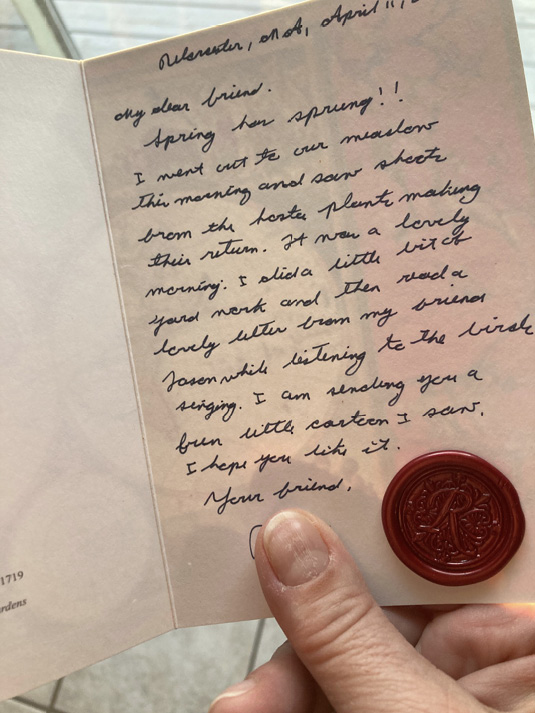 MA, April 11,
My dear friend.
Spring has sprung!!
I went out to our meadow
this morning and saw shoots
from the hosta plants making
their return. It was a lovely
morning. I did a little bit of
yard work and then read a
lovely letter from my friend
Jason while listening to the birds
singing. I am sending you a
fun little cartoon I saw.
I hope you like it.
Your friend,
R
1719
rdens